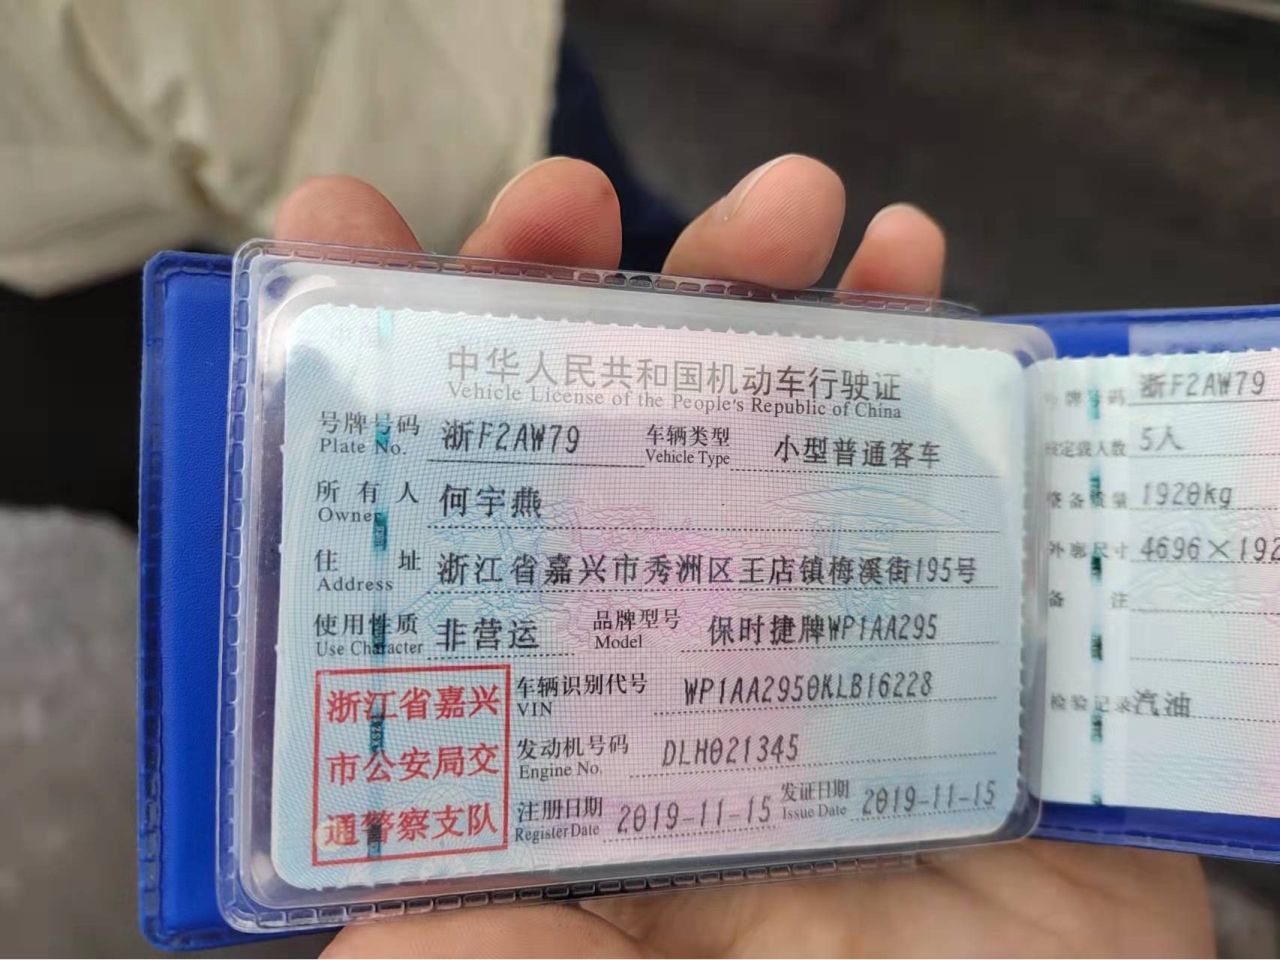 中华人民共和国机动车行驶证
Vehicle License of the People's Republic of China
号牌号码 浙F2AW79 车辆类型 小型普通客车
Plate No. Vehicle Type
所有人 何宇燕
Owner
住址 浙江省嘉兴市秀洲区王店镇梅溪街195号
Address
使用性质 非营运 品牌型号 保时捷牌WP1AA295
Use Character Model
浙江省嘉兴
市公安局交
通警察支队
车辆识别代号 WP1AA2950KLB16228
VIN
发动机号码 DLH021345
Engine No.
注册日期 2019-11-15 发证日期 2019-11-15
Register Date Issue Date
号牌号码 浙F2AW79
核定载人数 5人
整备质量 1920kg
外廓尺寸 4696×192
备注
检验记录 汽油